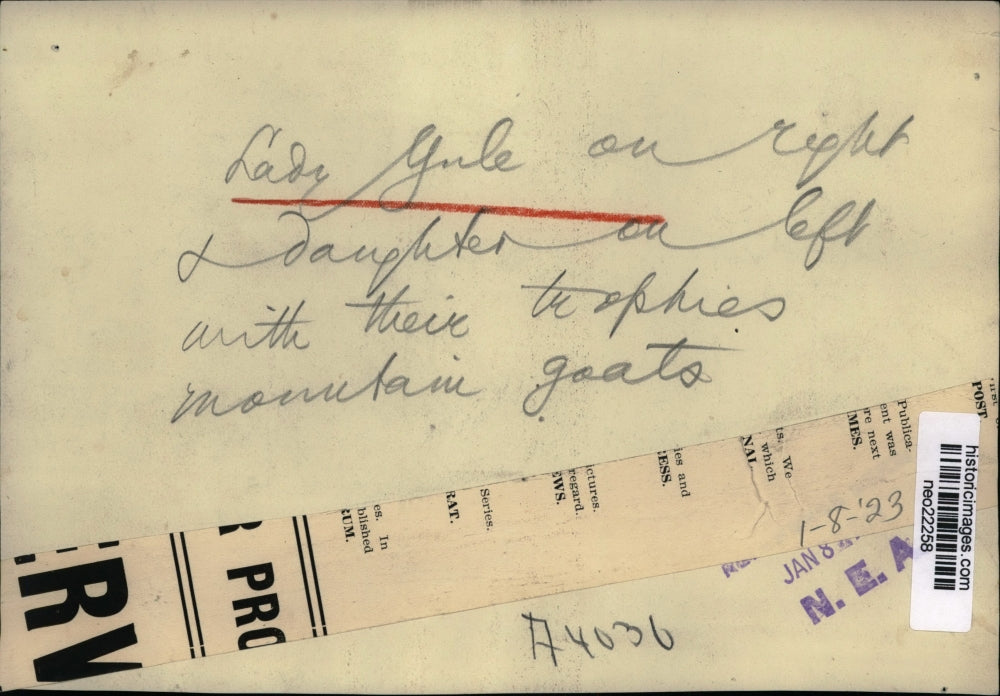 Lady Yule on right
& daughter on left
with their trophies
mountain goats
POST.
Publica-
ent was
re next
MES.
ts. We
which
NAL.
ies and
ESS.
ctures.
regard.
EWS.
Series.
RAT.
es. In
blished
RUM.
R PRO
ERV
1-8-'23
JAN 8
N. E. A
A4036
historicimages.com
neo22258